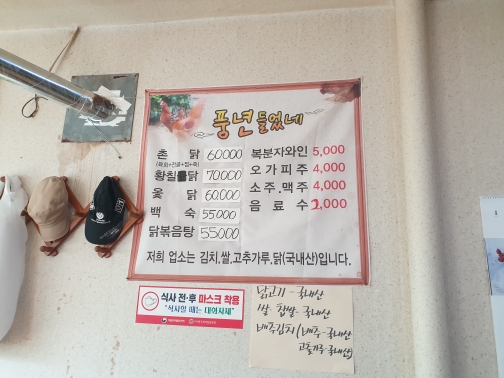 풍년들었네
촌 닭 60.000
황칠닭 70.000
옻 닭 60.000
백 숙 55.000
닭볶음탕 55.000
복분자와인 5,000
오가피주 4,000
소주.맥주 4,000
음료수 2,000
저희 업소는 김치,쌀,고추가루,닭(국내산)입니다.
식사 전·후 마스크 착용
"식사할 때는 대화자제"
닭고기 - 국내산
쌀 찹쌀 - 국내산
배추김치 (배추-국내산
고춧가루-국내산)